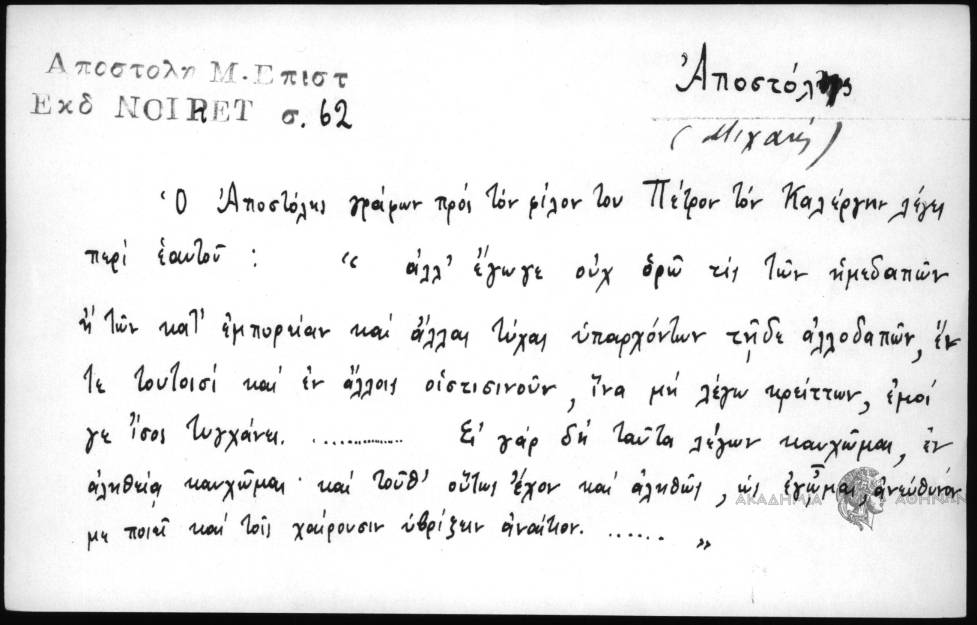 Αποστολη Μ. Επιστ
Εκδ NOIRET σ. 62
Ἀποστόλης
(Μιχαήλ)
Ὁ Ἀποστόλης γράφων πρός τόν φίλον του Πέτρον τόν Καλέργην λέγει
περί ἑαυτοῦ : “ ἀλλ' ἔγωγε οὐχ ὁρῶ τίς τῶν ἡμεδαπῶν
ἤ τῶν κατ' ἐμπορείαν καί ἄλλαι τύχαι ὑπαρχόντων τῇδε ἀλλοδαπῶν, ἔν
τε τουτοισί καί ἐν ἄλλοις οἱστισινοῦν, ἵνα μή λέγω κρείττων, ἐμοί
γε ἴσος τυγχάνει. ............... Εἰ γάρ δή ταῦτα λέγων καυχῶμαι, ἐν
ἀληθείᾳ καυχῶμαι· καί τοῦθ' οὕτως ἔχον καί ἀληθῶς, ὡς ἐγᾦμαι, ἀνεύθυνόν
με ποιεῖ καί τοῖς χαίρουσιν ὑβρίζειν ἀναίτιον. ...... ”
ΑΚΑΔΗΜΙΑ ΑΘΗΝΩΝ